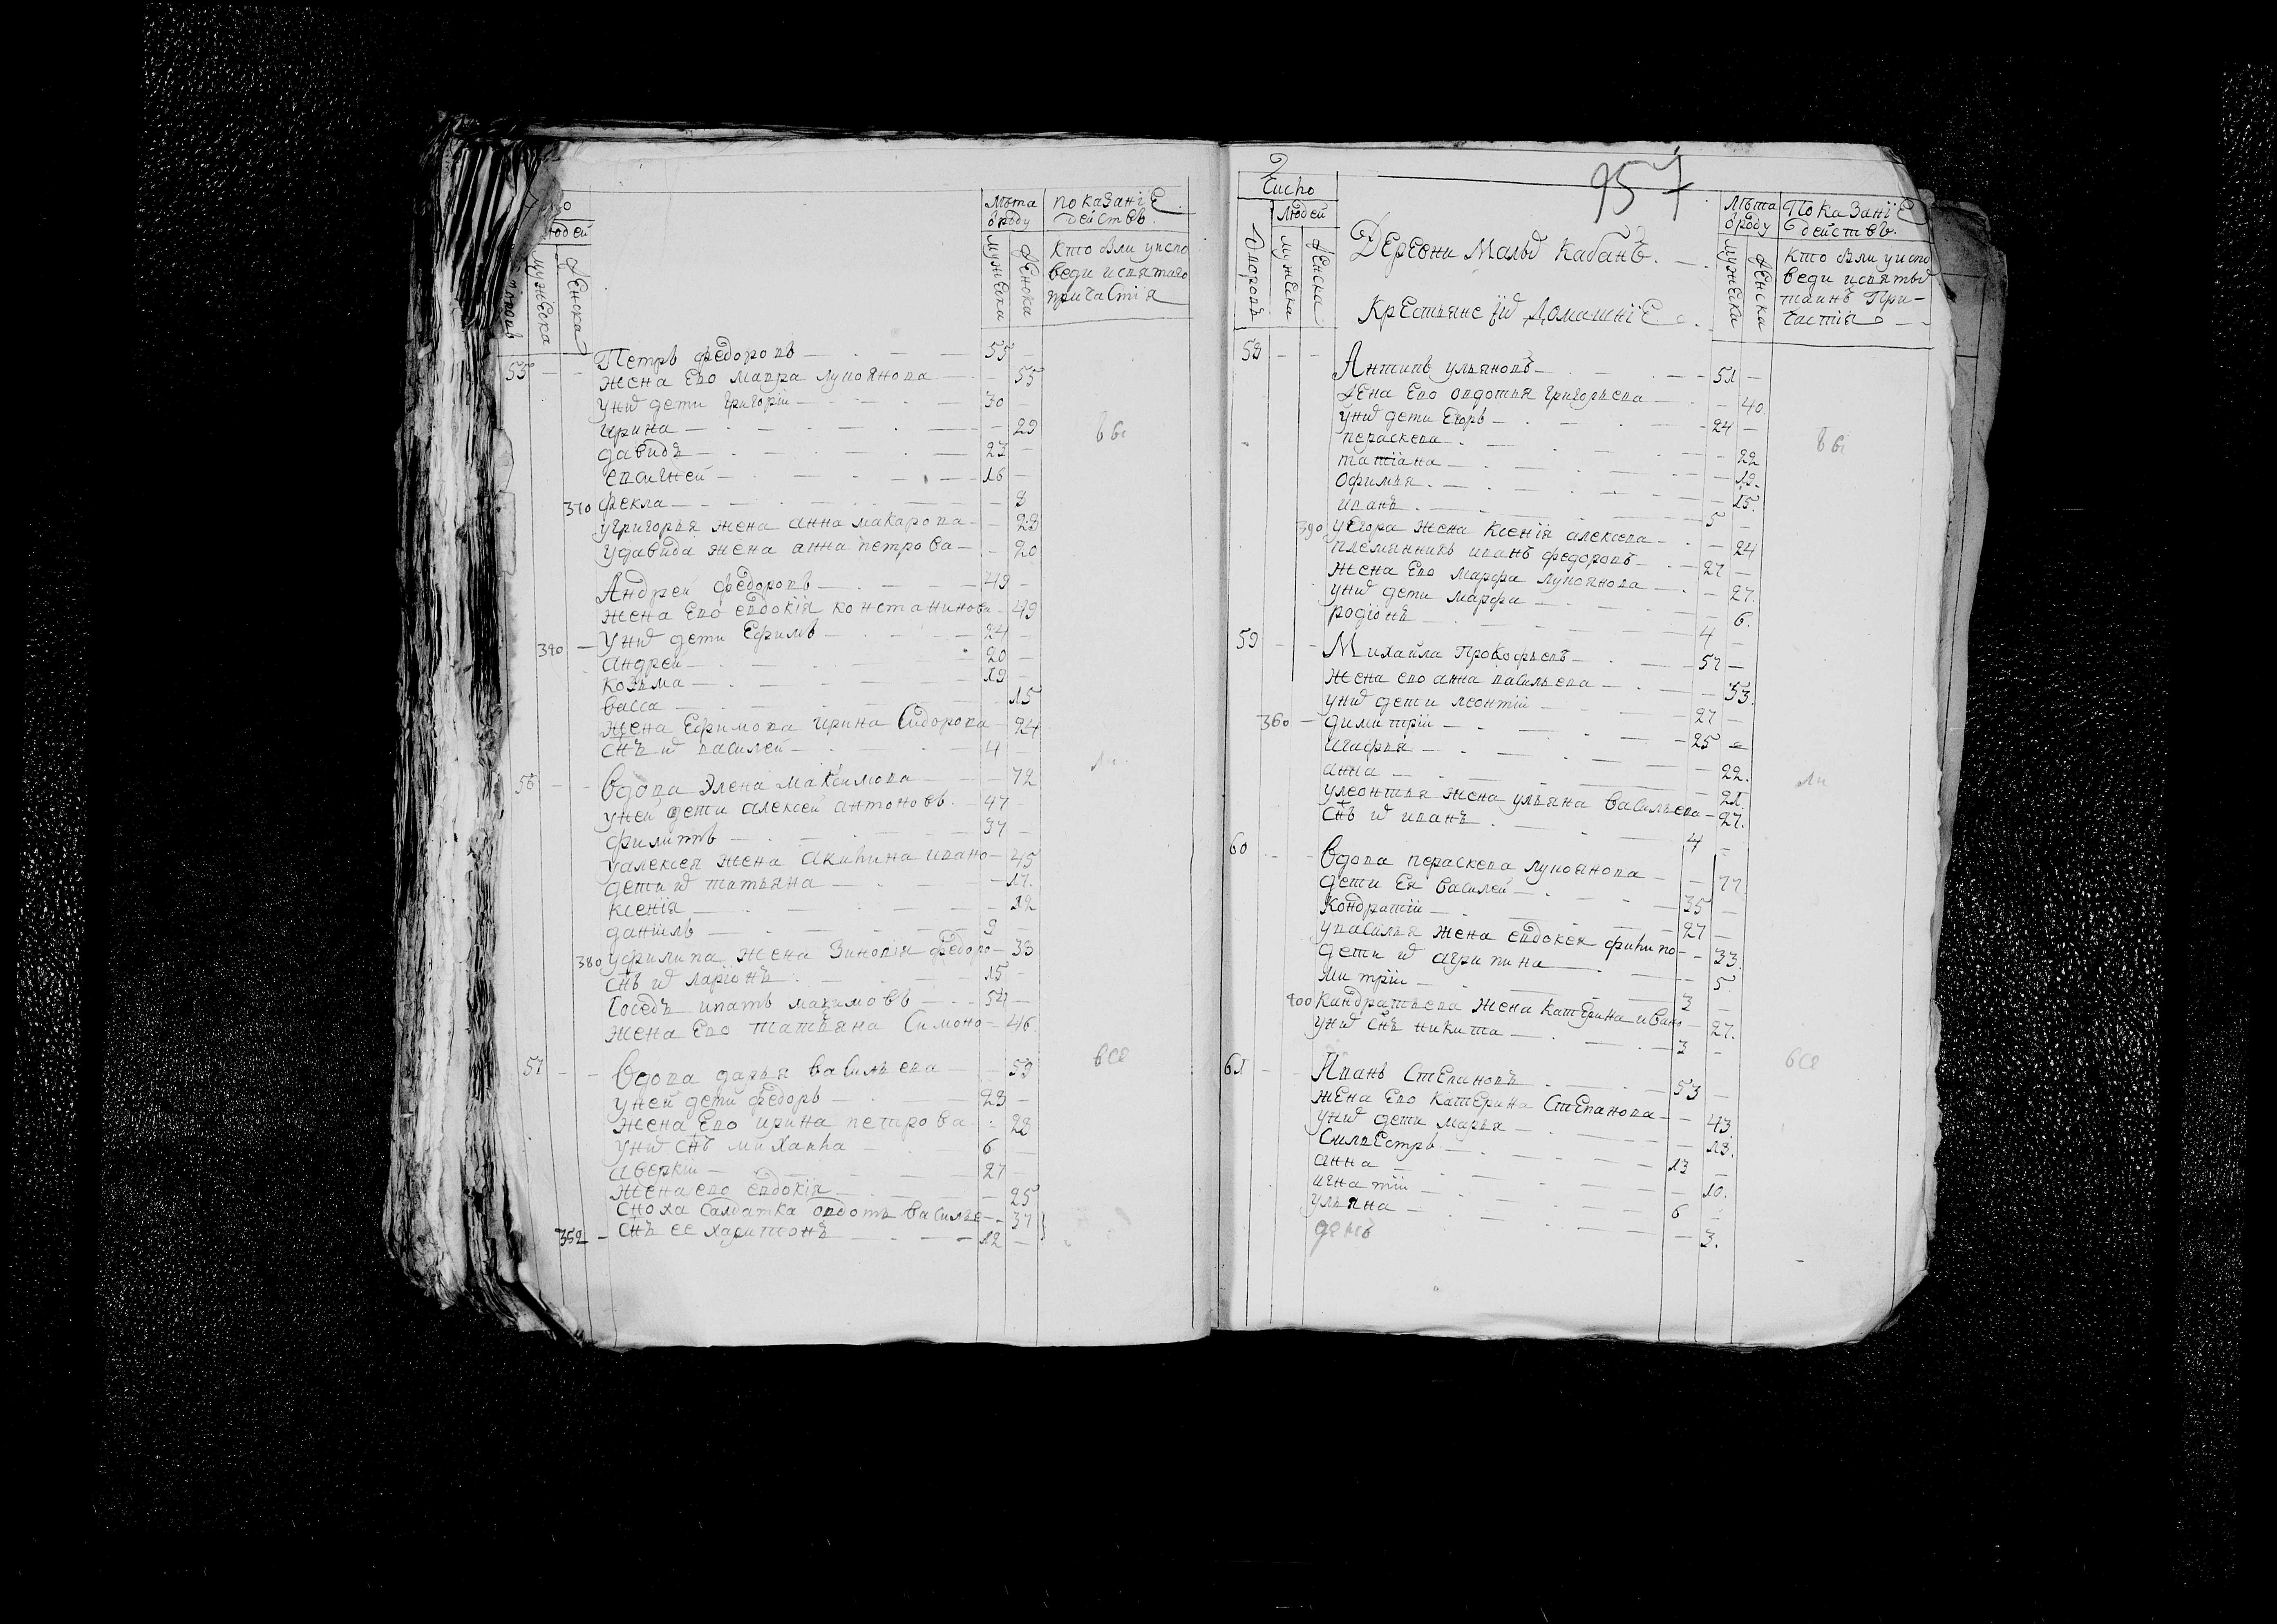 людей
мужеска
женска
Лѣта
в роду
мужеска
женска
показанiе
действъ
кто были у испо
веди и святаго
причастiя
55 Петръ федоровъ 55
жена Ево мавра лукоянова 55
у них дети григорiи 30
ирина 29
давидъ 23
16
370 фекла 9
у григорья жена анна макарова 28
у давида жена анна петрова 20
Андрей федоровъ 49
жена Ево евдокiя констанинова 49
390 у них дети Ефимъ 24
андрей 20
козьма 19
васса 15
жена Ефимова ирина Сидорова 24
снъ их василей 4
56 вдова Элена максимова 72
у ней дети алексей антоновъ 47
филиппъ 37
у алексея жена акилина ивано 45
дети их татьяна 17
ксенiя 12
данiилъ 9
380 у филипа жена Зиновiя федоро 33
снъ их ларiонъ 15
Соседъ ипатъ макимовъ 54
жена Ево татьяна Симоно 46
57 вдова дарья васильева 59
у ней дети федоръ 28
жена Ево ирина петрова 28
у них снъ михаила 6
аверкiи 27
жена ево евдокiя 25
сноха салдатка овдотья василье 37
352 снъ ее харитонъ 12
все
957
Число
людей
Дворовъ
мужеска
женска
Деревни Малых кабанъ
Крестьяне и их домашнiЕ
Лѣта
в роду
мужеска
женска
Показанiе
действъ
кто были у испо
веди и святых
таинъ При-
частiя
58 Антипъ ульяновъ 51
жена Ево овдотья григорьева 40
у них дети Егоръ 24
пераскева 22
татiана 19
офимья 15
иванъ 5
390 у Егора жена Ксенiя алексева 24
племянникъ иванъ федоровъ 27
жена Ево марфа лукоянова 27
у них дети марфа 6
родiонъ 4
59 Михайла Прокофьевъ 57
жена ево анна васильева 53
у них дети леонтiй 27
360 димитрiй 25
агафья 22
анна 21
у леонтья жена ульяна васильева 27
снъ их иванъ 4
60 вдова пераскева лукоянова 77
дети Ея василей 35
Кондратiй 27
у василья жена евдокея филипо 33
дети их агрипина 5
митрiи 3
400 Кандратьева жена катерина ивано 27
у них снъ никита 3
61 Иванъ Степановъ 53
жена Ево катерина Степанова 43
у них дети марья 18
Силвестръ 13
анна 10
игнатiи 6
ульяна 3
все